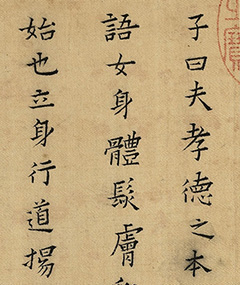 子曰夫孝德之本
語女身體髮膚受
始也立身行道揚